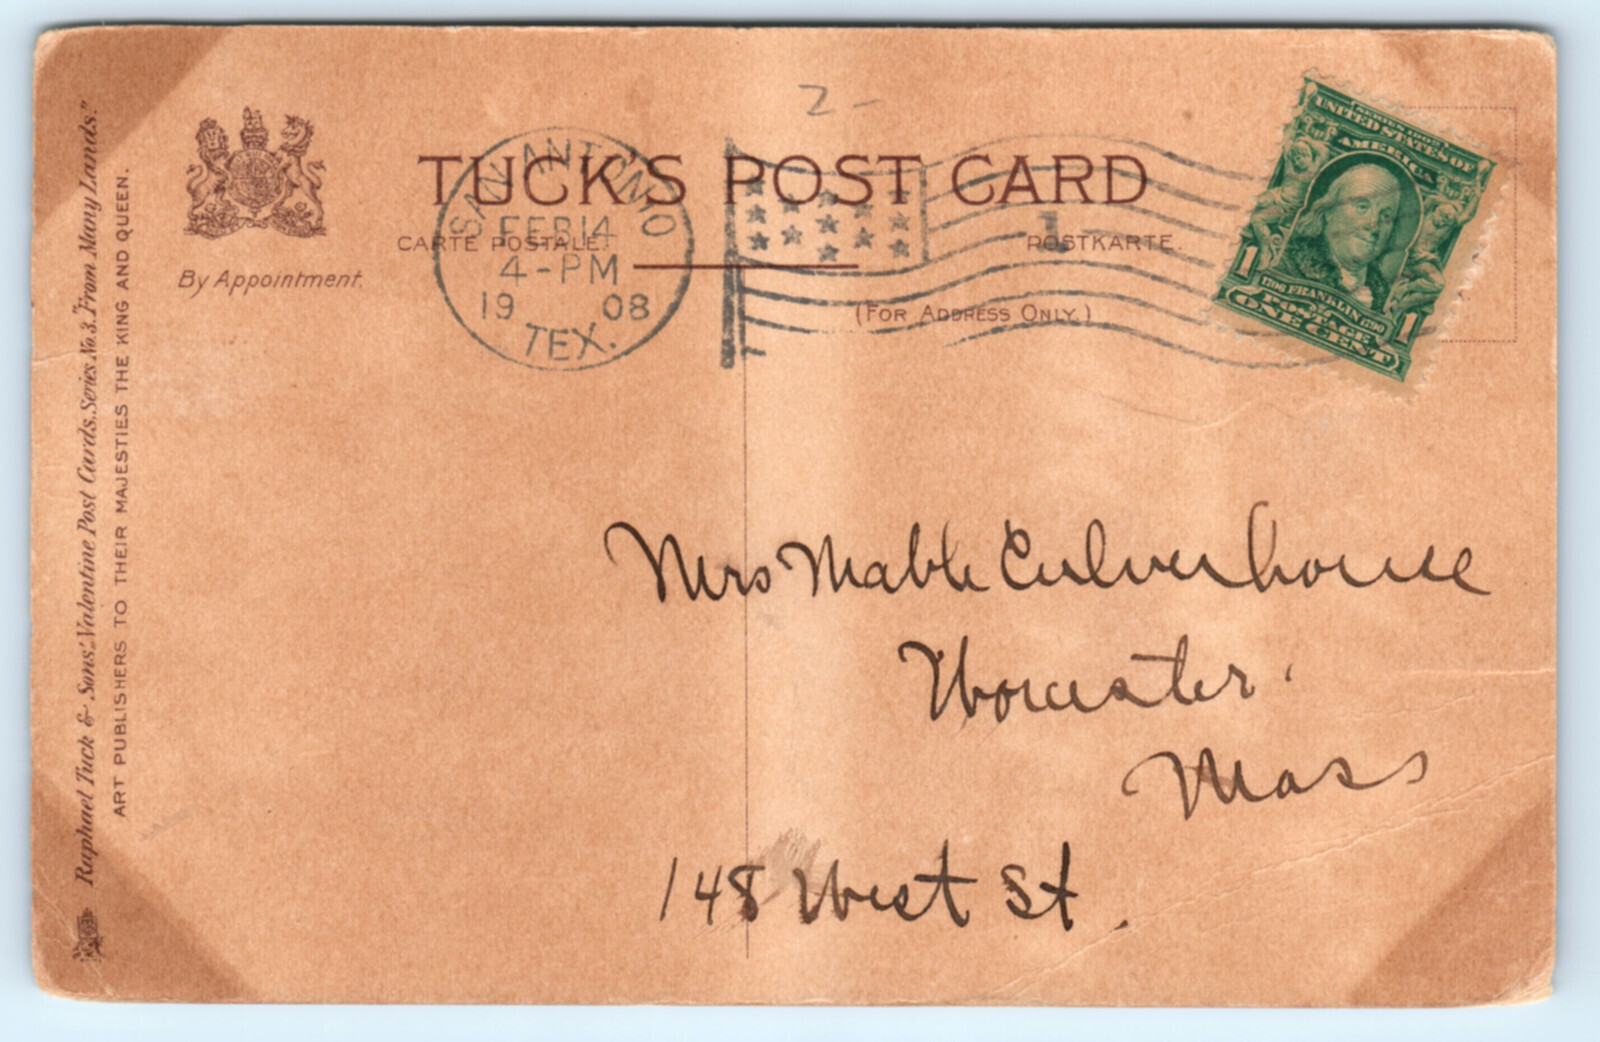 2-
TUCK'S POST CARD
CARTE POSTALE.
POSTKARTE.
(FOR ADDRESS ONLY.)
By Appointment.
SAN ANTONIO
FEB 14
4-PM
19 08
TEX.
1
SERIES 1902
UNITED STATES OF
AMERICA
1706 FRANKLIN 1790
POSTAGE
1 ONE CENT 1
Mrs Mable Culverhouse
Worcester
Mass
148 West St.
Raphael Tuck & Sons' "Valentine Post Cards. Series No. 3. "From Many Lands."
ART PUBLISHERS TO THEIR MAJESTIES THE KING AND QUEEN.